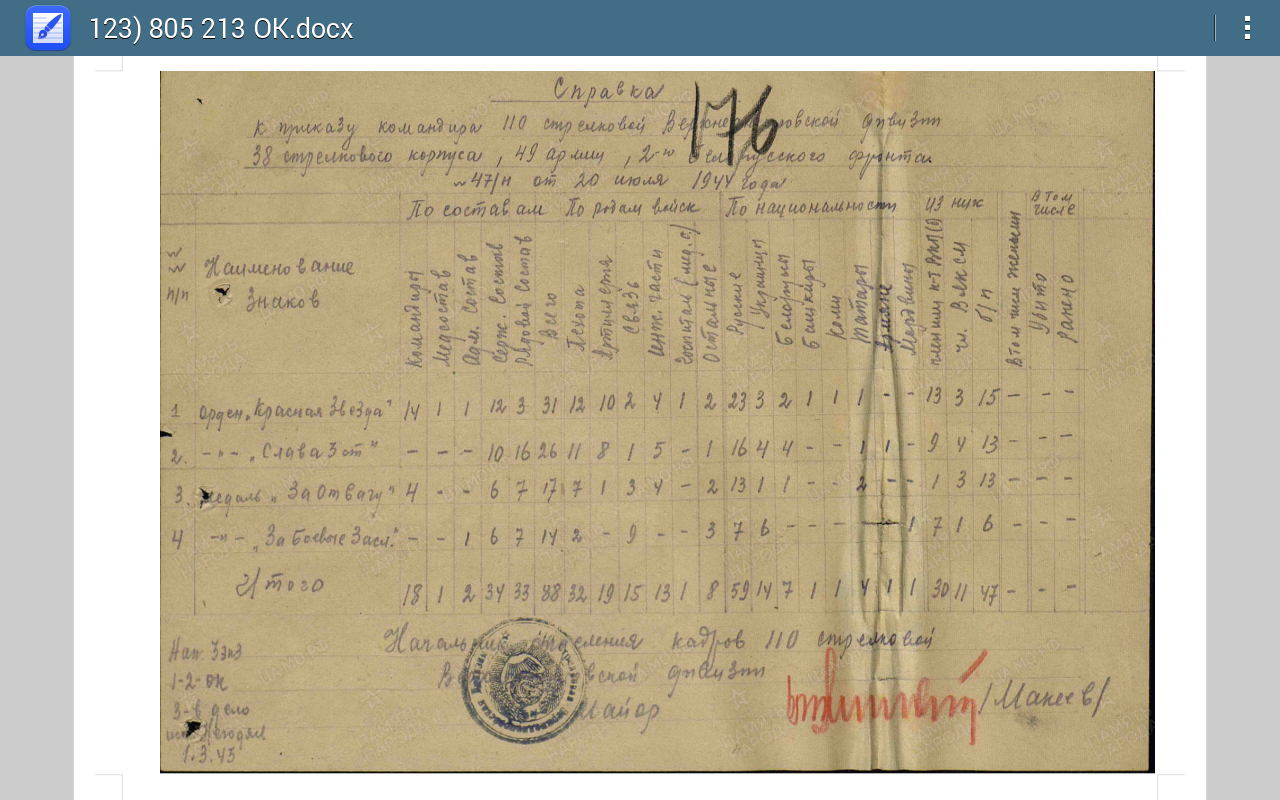 123) 805 213 OK.docx
Справка
176
к приказу командира 110 стрелковой дивизии
38 стрелкового корпуса, 49 армии, 2-го фронта
№ 47/н от 20 июля 1944 года
По составам По родам войск По национальности из них В том числе
№№ п/п Наименование Знаков Командиры Медсостав Адм. состав Серж. Состав Рядовой Состав Всего Пехота Артиллерия Связь инж. части госпитал (мед. с) Остальные Русские Украинцы Белорусы Башкиры Коми Татары Армяне Мордвины чл. ВЛКСМ б/п В том числе женщин Убито Ранено
1 Орден „Красная Звезда" 14 1 1 12 3 31 12 10 2 4 1 2 23 3 2 1 1 1 - - 13 3 15 - - -
2. -"- „Слава 3 ст" - - - 10 16 26 11 8 1 5 - 1 16 4 4 - - 1 1 - 9 4 13 - - -
3. медаль „За Отвагу" 4 - - 6 7 17 7 1 3 4 - 2 13 1 1 - - 2 - - 1 3 13 - - -
4 -"- „За Боевые Засл." - - 1 6 7 14 2 - 9 - - 3 7 6 - - - - - 1 7 1 6 - - -
Итого 18 1 2 34 33 88 32 19 15 13 1 8 59 14 7 1 1 4 1 1 30 11 47 - - -
Начальник отделения кадров 110 стрелковой
дивизии
Майор /Макеев/
Нап. 3 экз
1-2-ок
3-в дело
1.3.45